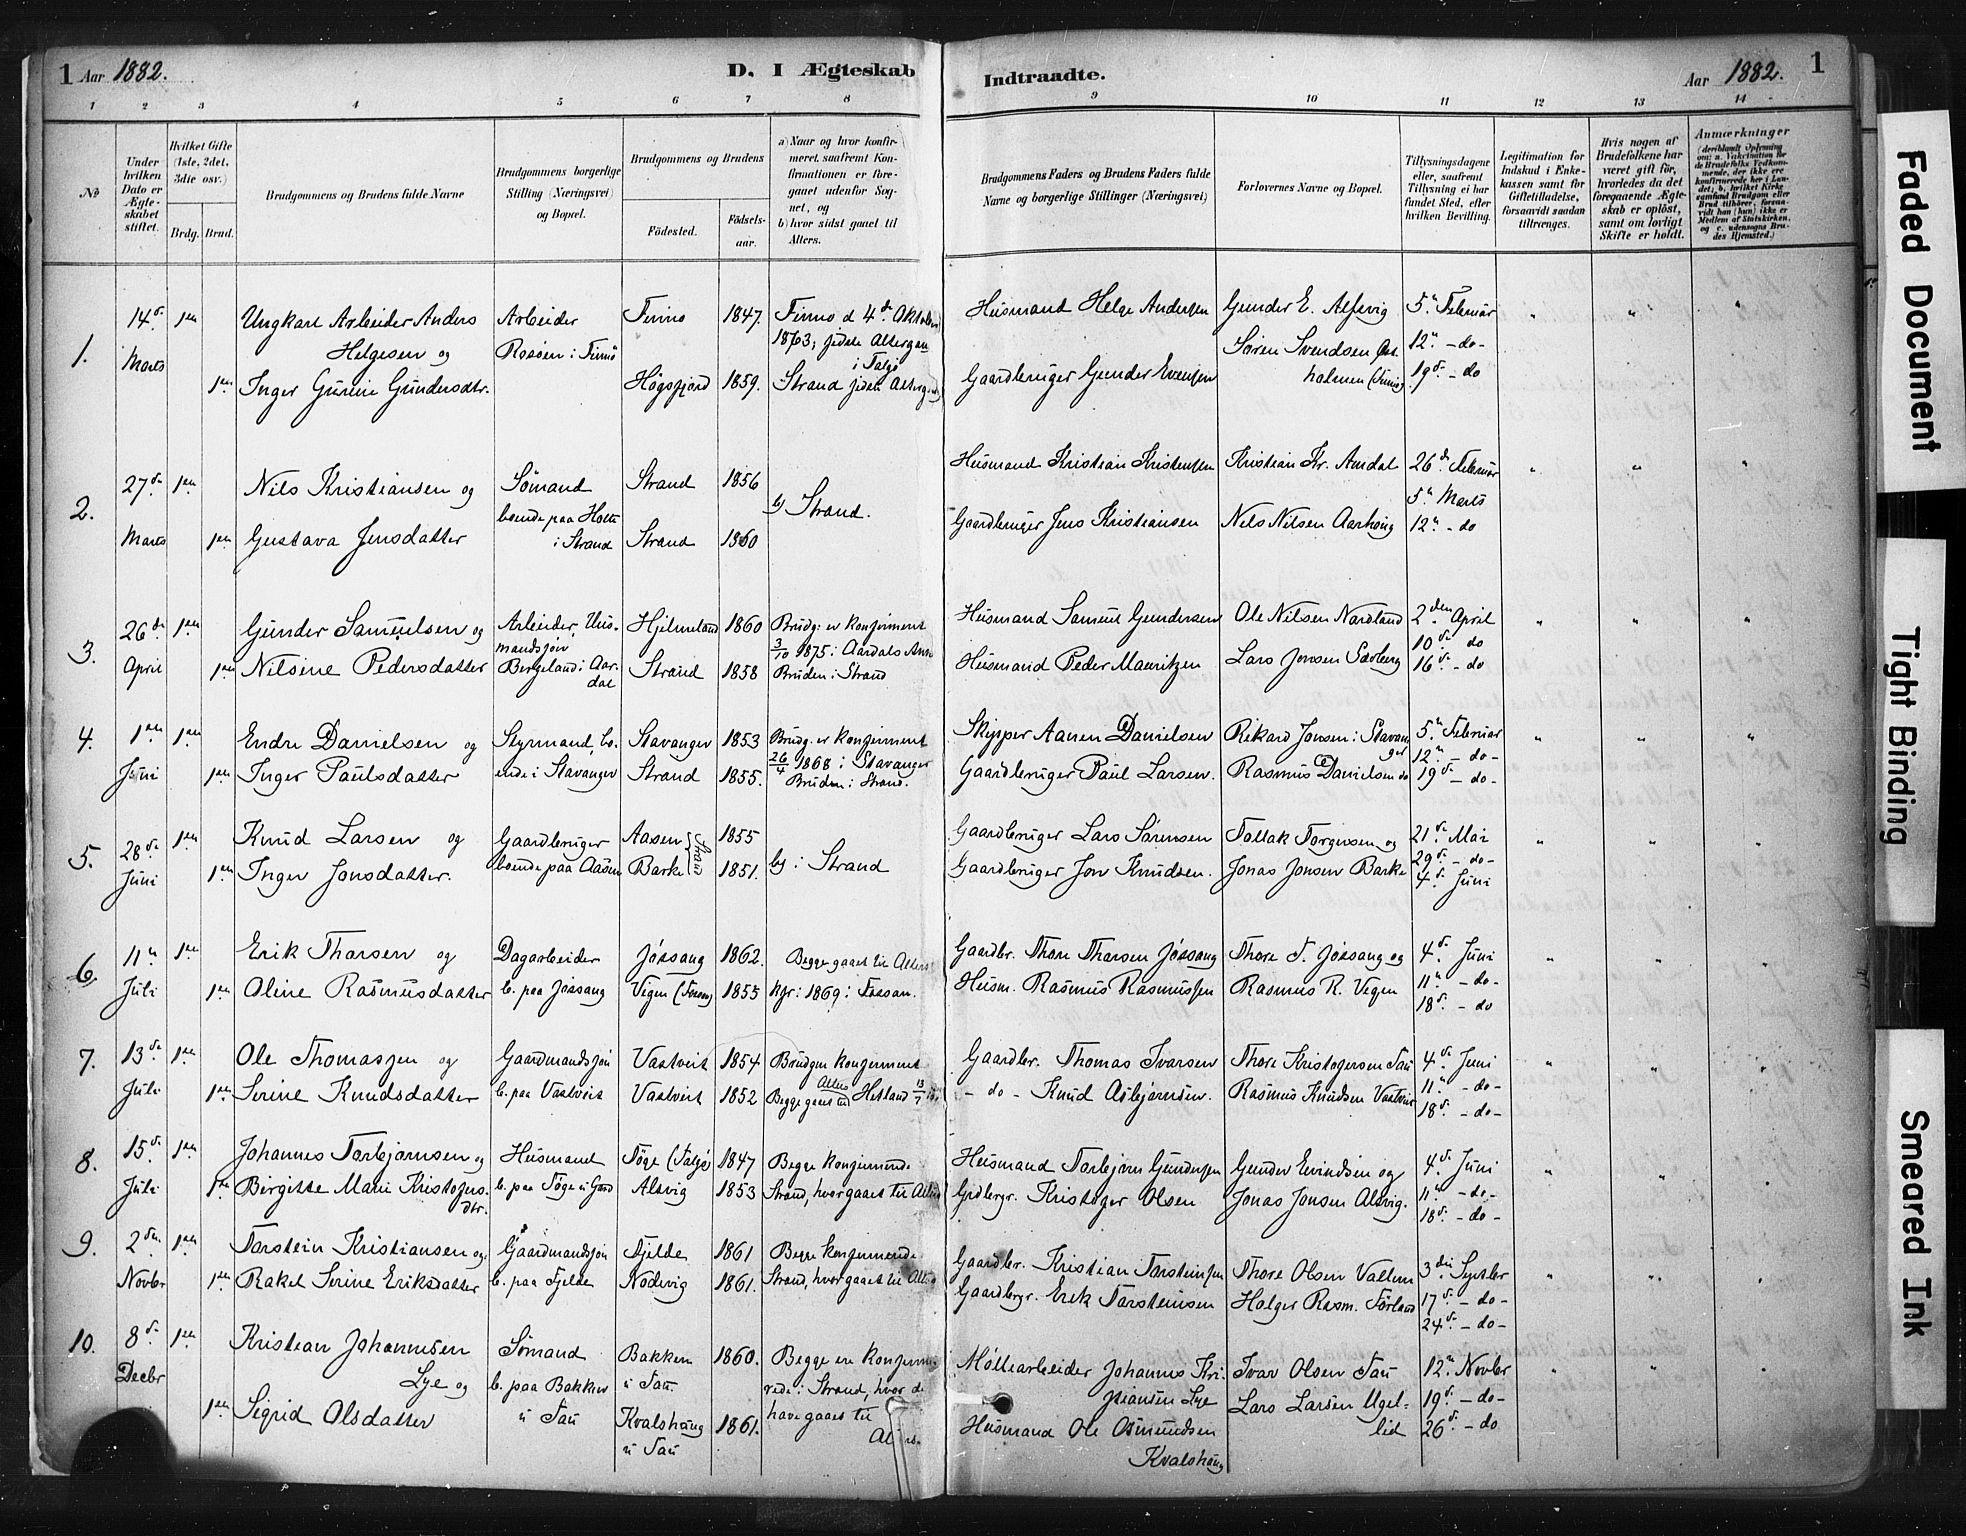 1 Aar 1882. D. I Ægteskab Indtraadte. Aar 1882. 1
1 2 3 4 5 6 7 8 9 10 11 12 13 14
No
Under hvilken Dato er Ægteskabet stiftet.
Hvilket Gifte (1ste, 2det, 3die osv.)
Brdg. Brud.
Brudgommens og Brudens fulde Navne
Brudgommens borgerlige Stilling (Næringsvei) og Bopæl.
Brudgommens og Brudens
Fødested. Fødselsaar.
a) Naar og hvor konfirmeret, saafremt Konfirmationen er foregaaet udenfor Sognet, og
b) hvor sidst gaaet til Alters.
Brudgommens Faders og Brudens Faders fulde Navne og borgerlige Stillinger (Næringsvei)
Forlovernes Navne og Bopæl.
Tillysningsdagene eller, saafremt Tillysning ei har fundet Sted, efter hvilken Bevilling.
Legitimation for Indskud i Enkekassen samt for Giftetilladelse, forsaavidt saadan tiltrænges.
Hvis nogen af Brudefolkene har været gift før, hvorledes da det foregaaende Ægteskab er opløst, samt om lovligt Skifte er holdt.
Anmærkninger
(deriblandt Oplysning om: a. Vakcination for de Brudefolks Vedkommende, der ikke ere konfirmerede her i Landet; b. hvilket Kirkesamfund Brudgom eller Brud tilhører, forsaavidt han (hun) ikke er Medlem af Statskirken, og c. udensogns Brudes Hjemsted.)
1. 14de Marts 1ste Ungkarl Arbeider Anders Helgesen og
Arbeider Rosøen i Finnø
Finnø 1847. Finnø d 4de Oktober 1863; sidste Altergang i Talgø
Husmand Helge Andersen
Gunder E. Alsvig
5te Februar
1ste Inger Gurine Gundersdtr. Høgsfjord 1859. Strand sidste Alterg.
Gaardbruger Gunder Evensen
Søren Svendsen holmen (Finnø)
12te - do -
19de - do
2. 27de Marts 1ste Nils Kristiansen og
Sømand boende paa Holte i Strand
Strand 1856 bg Strand.
Husmand Kristian Kristensen
Kristian Kr. Amdal
26de Februar
1ste Gustava Jensdatter Strand 1860
Gaardbruger Jens Kristiansen
Nils Nilsen Aarhoug
5te Marts
12te - do
3. 26de April 1ste Gunder Samuelsen og
Arbeider, Husmandssøn Bergeland i Aardal
Hjelmeland 1860 Brudg: er konfirmeret 3/10 1875 i Aardals
Husmand Samuel Gundersen
Ole Nilsen Nordland
2den April
1ste Nilsine Pedersdatter Strand 1858 Bruden i Strand
Husmand Peder Mauritzen
Lars Jonsen Solberg
10de do
16de - do
4. 1ste Juni 1ste Endre Danielsen og
Styrmand, boende i Stavanger
Stavanger 1853 Brudg. er konfirmeret 26/4 1868 i Stavanger
Skipper Aanen Danielsen
Rikard Jonsen i Stavanger
5te Februar
1ste Inger Paulsdatter Strand 1855. Bruden i Strand.
Gaardbruger Paul Larsen.
Rasmus Danielsen do
12te - do -
19de - do -
5. 28de Juni 1ste Knud Larsen og
Gaardbruger boende paa Aasen
Aasen 1855 bg i Strand
Gaardbruger Lars Sørensen
Tollak Torgersen og
21de Mai
1ste Inger Jonsdatter. Barke 1851.
Gaardbruger Jon Knudsen.
Jonas Jonsen Barke
29de - do -
4de Juni
6. 11te Juli 1ste Erik Thorsen og
Dagarbeider b. paa Jøssang
Jøssang 1862. Begge gaaet til Alters
Gaardbr. Thore Thorsen Jøssang
Thore T. Jøssang og
4de Juni
1ste Aline Rasmusdatter Vigen (Fossan) 1855 kfr: 1869 i Fossan.
Husm. Rasmus Rasmussen
Rasmus R. Vigen
11te - do -
18de - do
7. 13de Juli 1ste Ole Thomassen og
Gaardmandssøn b. paa Vastveit
Vastveit 1854 Brudgm konfirmeret
Gaardbr. Thomas Ivarsen
Thore Kristofersen Tau
4de Juni
1ste Serine Knudsdatter Vastveit 1852 Begge gaaet til Alters Hetland 13/7
- do - Knud Asbjørnsen.
Rasmus Knudsen Vastveit
11te - do -
18de - do -
8. 15de Juli 1ste Johannes Torbjørnsen og
Husmand b. paa Tøge u Gard
Tøge (Talgø) 1847 Begge konfirmerede
Husmand Torbjørn Gundersen
Gunder Eivindsen og
4de Juni
1ste Birgitte Marie Kristofersdtr. Alsvig 1853 Strand, hvor gaaet til Alters
Grdbrgr. Kristofer Olsen
Jonas Jonsen Alsvig.
11te - do -
18de - do -
9. 2den Novbr 1ste Torstein Kristiansen og
Gaardmandssøn b. paa Fjelde
Fjelde 1861 Begge konfirmerede
Gaardbr. Kristian Torsteinsen
Thore Olsen
3die Septbr
1ste Rakel Serine Eriksdatter Nodvig 1861. Strand, hvor gaaet til Alters
Gaardbrgr. Erik Torsteinsen
Holger Rasm. Førland
17de - do -
24de - do -
10. 8de Decbr 1ste Kristian Johannesen Lye og
Sømand b. paa Bakken u Tau
Bakken u Tau. 1860. Begge ere konfirmerede i Strand, hvor de have gaaet til Alters.
Møllearbeider Johannes Kristiansen Lye
Ivar Olsen Tau
12te Novbr
1ste Sigrid Olsdatter Kvalshaug u Tau 1861.
Husmand Ole Osmundsen Kvalshaug
Lars Larsen Ugellid
19de - do -
26de - do
Faded Document
Tight Binding
Smeared Ink